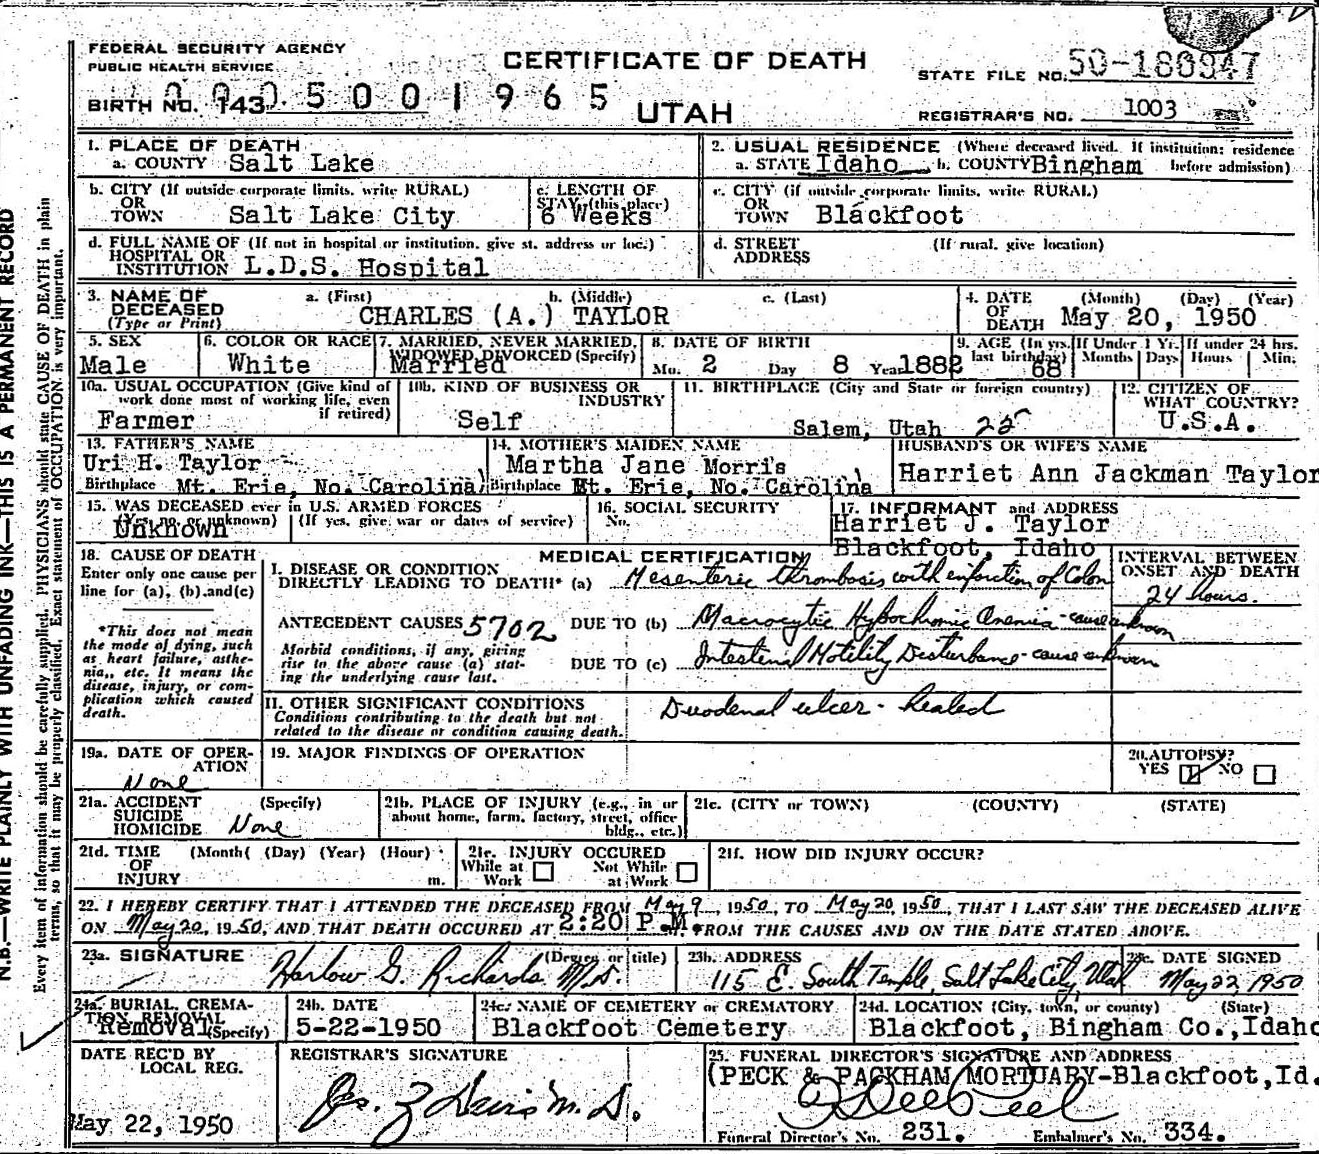 FEDERAL SECURITY AGENCY
PUBLIC HEALTH SERVICE
CERTIFICATE OF DEATH
STATE FILE NO. 50-180947
BIRTH NO. 143 5001965
UTAH
REGISTRAR'S NO. 1003
1. PLACE OF DEATH
a. COUNTY Salt Lake
2. USUAL RESIDENCE (Where deceased lived. If institution: residence before admission)
a. STATE Idaho b. COUNTY Bingham
b. CITY (If outside corporate limits, write RURAL)
OR TOWN Salt Lake City
c. LENGTH OF STAY (this place)
6 Weeks
c. CITY (if outside corporate limits, write RURAL)
OR TOWN Blackfoot
d. FULL NAME OF (If not in hospital or institution, give st. address or loc.)
HOSPITAL OR INSTITUTION L.D.S. Hospital
d. STREET ADDRESS (If rural, give location)
3. NAME OF DECEASED (Type or Print)
a. (First) b. (Middle) c. (Last)
CHARLES (A.) TAYLOR
4. DATE OF DEATH (Month) (Day) (Year)
May 20, 1950
5. SEX
Male
6. COLOR OR RACE
White
7. MARRIED, NEVER MARRIED, WIDOWED, DIVORCED (Specify)
Married
8. DATE OF BIRTH
Mo. 2 Day 8 Year 1882
9. AGE (In yrs. last birthday) 68
If Under 1 Yr. Months Days
If under 24 hrs. Hours Min.
10a. USUAL OCCUPATION (Give kind of work done most of working life, even if retired)
Farmer
10b. KIND OF BUSINESS OR INDUSTRY
Self
11. BIRTHPLACE (City and State or foreign country)
Salem, Utah 25
12. CITIZEN OF WHAT COUNTRY?
U.S.A.
13. FATHER'S NAME
Uri H. Taylor
Birthplace Mt. Erie, No. Carolina
14. MOTHER'S MAIDEN NAME
Martha Jane Morris
Birthplace Mt. Erie, No. Carolina
HUSBAND'S OR WIFE'S NAME
Harriet Ann Jackman Taylor
15. WAS DECEASED ever in U.S. ARMED FORCES
(Yes, no, or unknown) (If yes, give war or dates of service)
Unknown
16. SOCIAL SECURITY No.
17. INFORMANT and ADDRESS
Harriet J. Taylor
Blackfoot, Idaho
18. CAUSE OF DEATH
Enter only one cause per line for (a), (b) and (c)
*This does not mean the mode of dying, such as heart failure, asthenia, etc. It means the disease, injury, or complication which caused death.
MEDICAL CERTIFICATION
INTERVAL BETWEEN ONSET AND DEATH
I. DISEASE OR CONDITION DIRECTLY LEADING TO DEATH* (a) Mesenteric thrombosis with infarction of Colon
24 hours.
ANTECEDENT CAUSES 5702 DUE TO (b) Macrocytic Hypochromic Anemia - cause unknown
Morbid conditions, if any, giving rise to the above cause (a) stating the underlying cause last.
DUE TO (c) Intestinal Motility Disturbance - cause unknown
II. OTHER SIGNIFICANT CONDITIONS
Conditions contributing to the death but not related to the disease or condition causing death.
Duodenal ulcer - healed
19a. DATE OF OPERATION
None
19. MAJOR FINDINGS OF OPERATION
20. AUTOPSY?
YES NO
21a. ACCIDENT SUICIDE HOMICIDE (Specify)
None
21b. PLACE OF INJURY (e.g., in or about home, farm, factory, street, office bldg., etc.)
21c. (CITY or TOWN) (COUNTY) (STATE)
21d. TIME OF INJURY (Month( (Day) (Year) (Hour) m.
21e. INJURY OCCURED
While at Work Not While at Work
21f. HOW DID INJURY OCCUR?
22. I HEREBY CERTIFY THAT I ATTENDED THE DECEASED FROM May 9, 1950, TO May 20, 1950, THAT I LAST SAW THE DECEASED ALIVE
ON May 20, 1950, AND THAT DEATH OCCURED AT 2:20 P.M. FROM THE CAUSES AND ON THE DATE STATED ABOVE.
23a. SIGNATURE (Degree or title)
Harlow G. Richards M.D.
23b. ADDRESS
115 E. South Temple, Salt Lake City, Utah
23c. DATE SIGNED
May 22, 1950
24a. BURIAL, CREMATION, REMOVAL (Specify)
Removal
24b. DATE
5-22-1950
24c. NAME OF CEMETERY or CREMATORY
Blackfoot Cemetery
24d. LOCATION (City, town, or county) (State)
Blackfoot, Bingham Co., Idaho
DATE REC'D BY LOCAL REG.
May 22, 1950
REGISTRAR'S SIGNATURE
25. FUNERAL DIRECTOR'S SIGNATURE AND ADDRESS
(PECK & PACKHAM MORTUARY-Blackfoot, Id.
Funeral Director's No. 231. Embalmer's No. 334.
N.B.—WRITE PLAINLY WITH UNFADING INK—THIS IS A PERMANENT RECORD
Every item of information should be carefully supplied. PHYSICIANS should state CAUSE OF DEATH in plain
terms, so that it may be properly classified. Exact statement of OCCUPATION is very important.